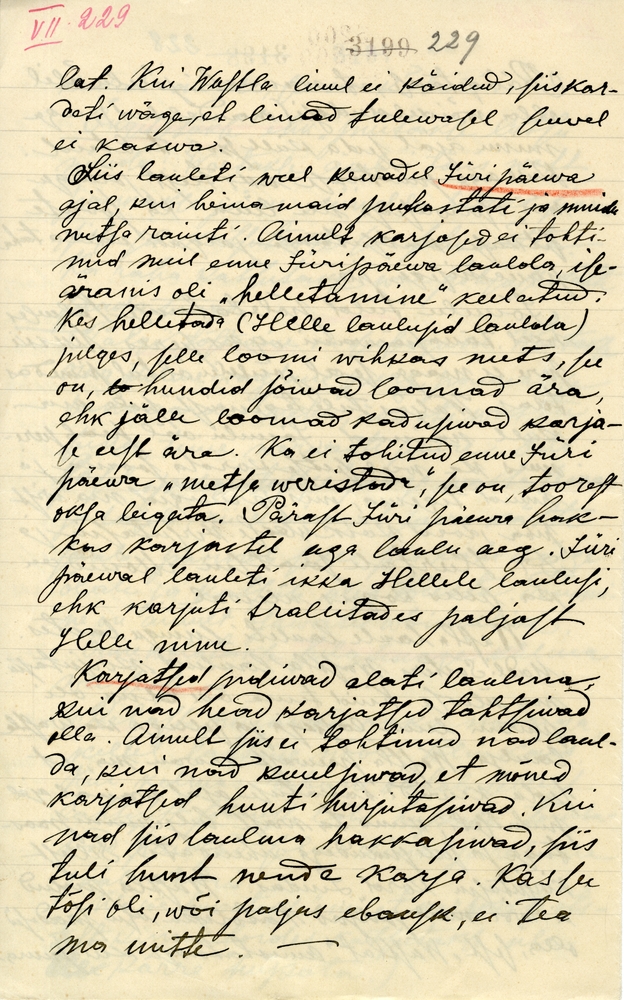 VII. 229
3199 229
lat. Kui Wastla liuul ei käidud, siis kar-
deti wäga, et linad tulewasel suwel
ei kaswa.
Siis lauleti weel kewadel Jüripäewa
ajal, kui heinamaid puhastati ja muidu
metsa raiuti. Ainult karjased ei tohti-
nud neil enne Jüripäewa laulda, ise-
äranis oli „helletamine" keelatud.
Kes helletada (Helle laulusid laulda)
julges, selle loomi wihkas mets, se
on, hundid sõiwad loomad ära,
ehk jälle loomad kadusiwad karja-
se eest ära. Ka ei tohitud enne Jüri
päewa „metsa weristada", se on, toorest
oksa leigata. Pärast Jüri päewa hak-
kas karjastel aga laulu aeg. Jüri
päewal lauleti ikka Hellele laulusi,
ehk karjuti trallitades paljast
Helle nime.
Karjatsed pidiwad alati laulma,
kui nad head karjatsed tahtsiwad
olla. Ainult siis ei tohtinud nad laul-
da, kui nad kuulsiwad, et mõned
karjatsed hunti hurjutasiwad. Kui
nad siis laulma hakkasiwad, siis
tuli hunt nende karja. Kas se
tõsi oli, wõi paljas ebausk, ei tea
ma mitte. —